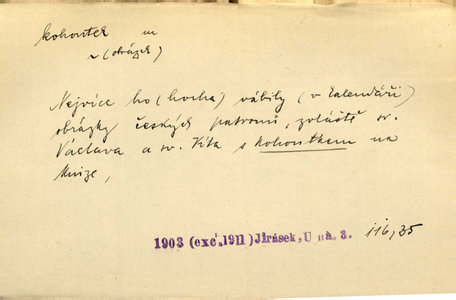 kohoutek m
~ (obrázek)
Nejvíce ho (hocha) vábily (v kalendáři)
obrázky českých patronů, zvláště sv.
Václava a sv. Víta s kohoutkem na
knize,
1903 (exc. 1911) Jirásek, U nás. 3. 116,35